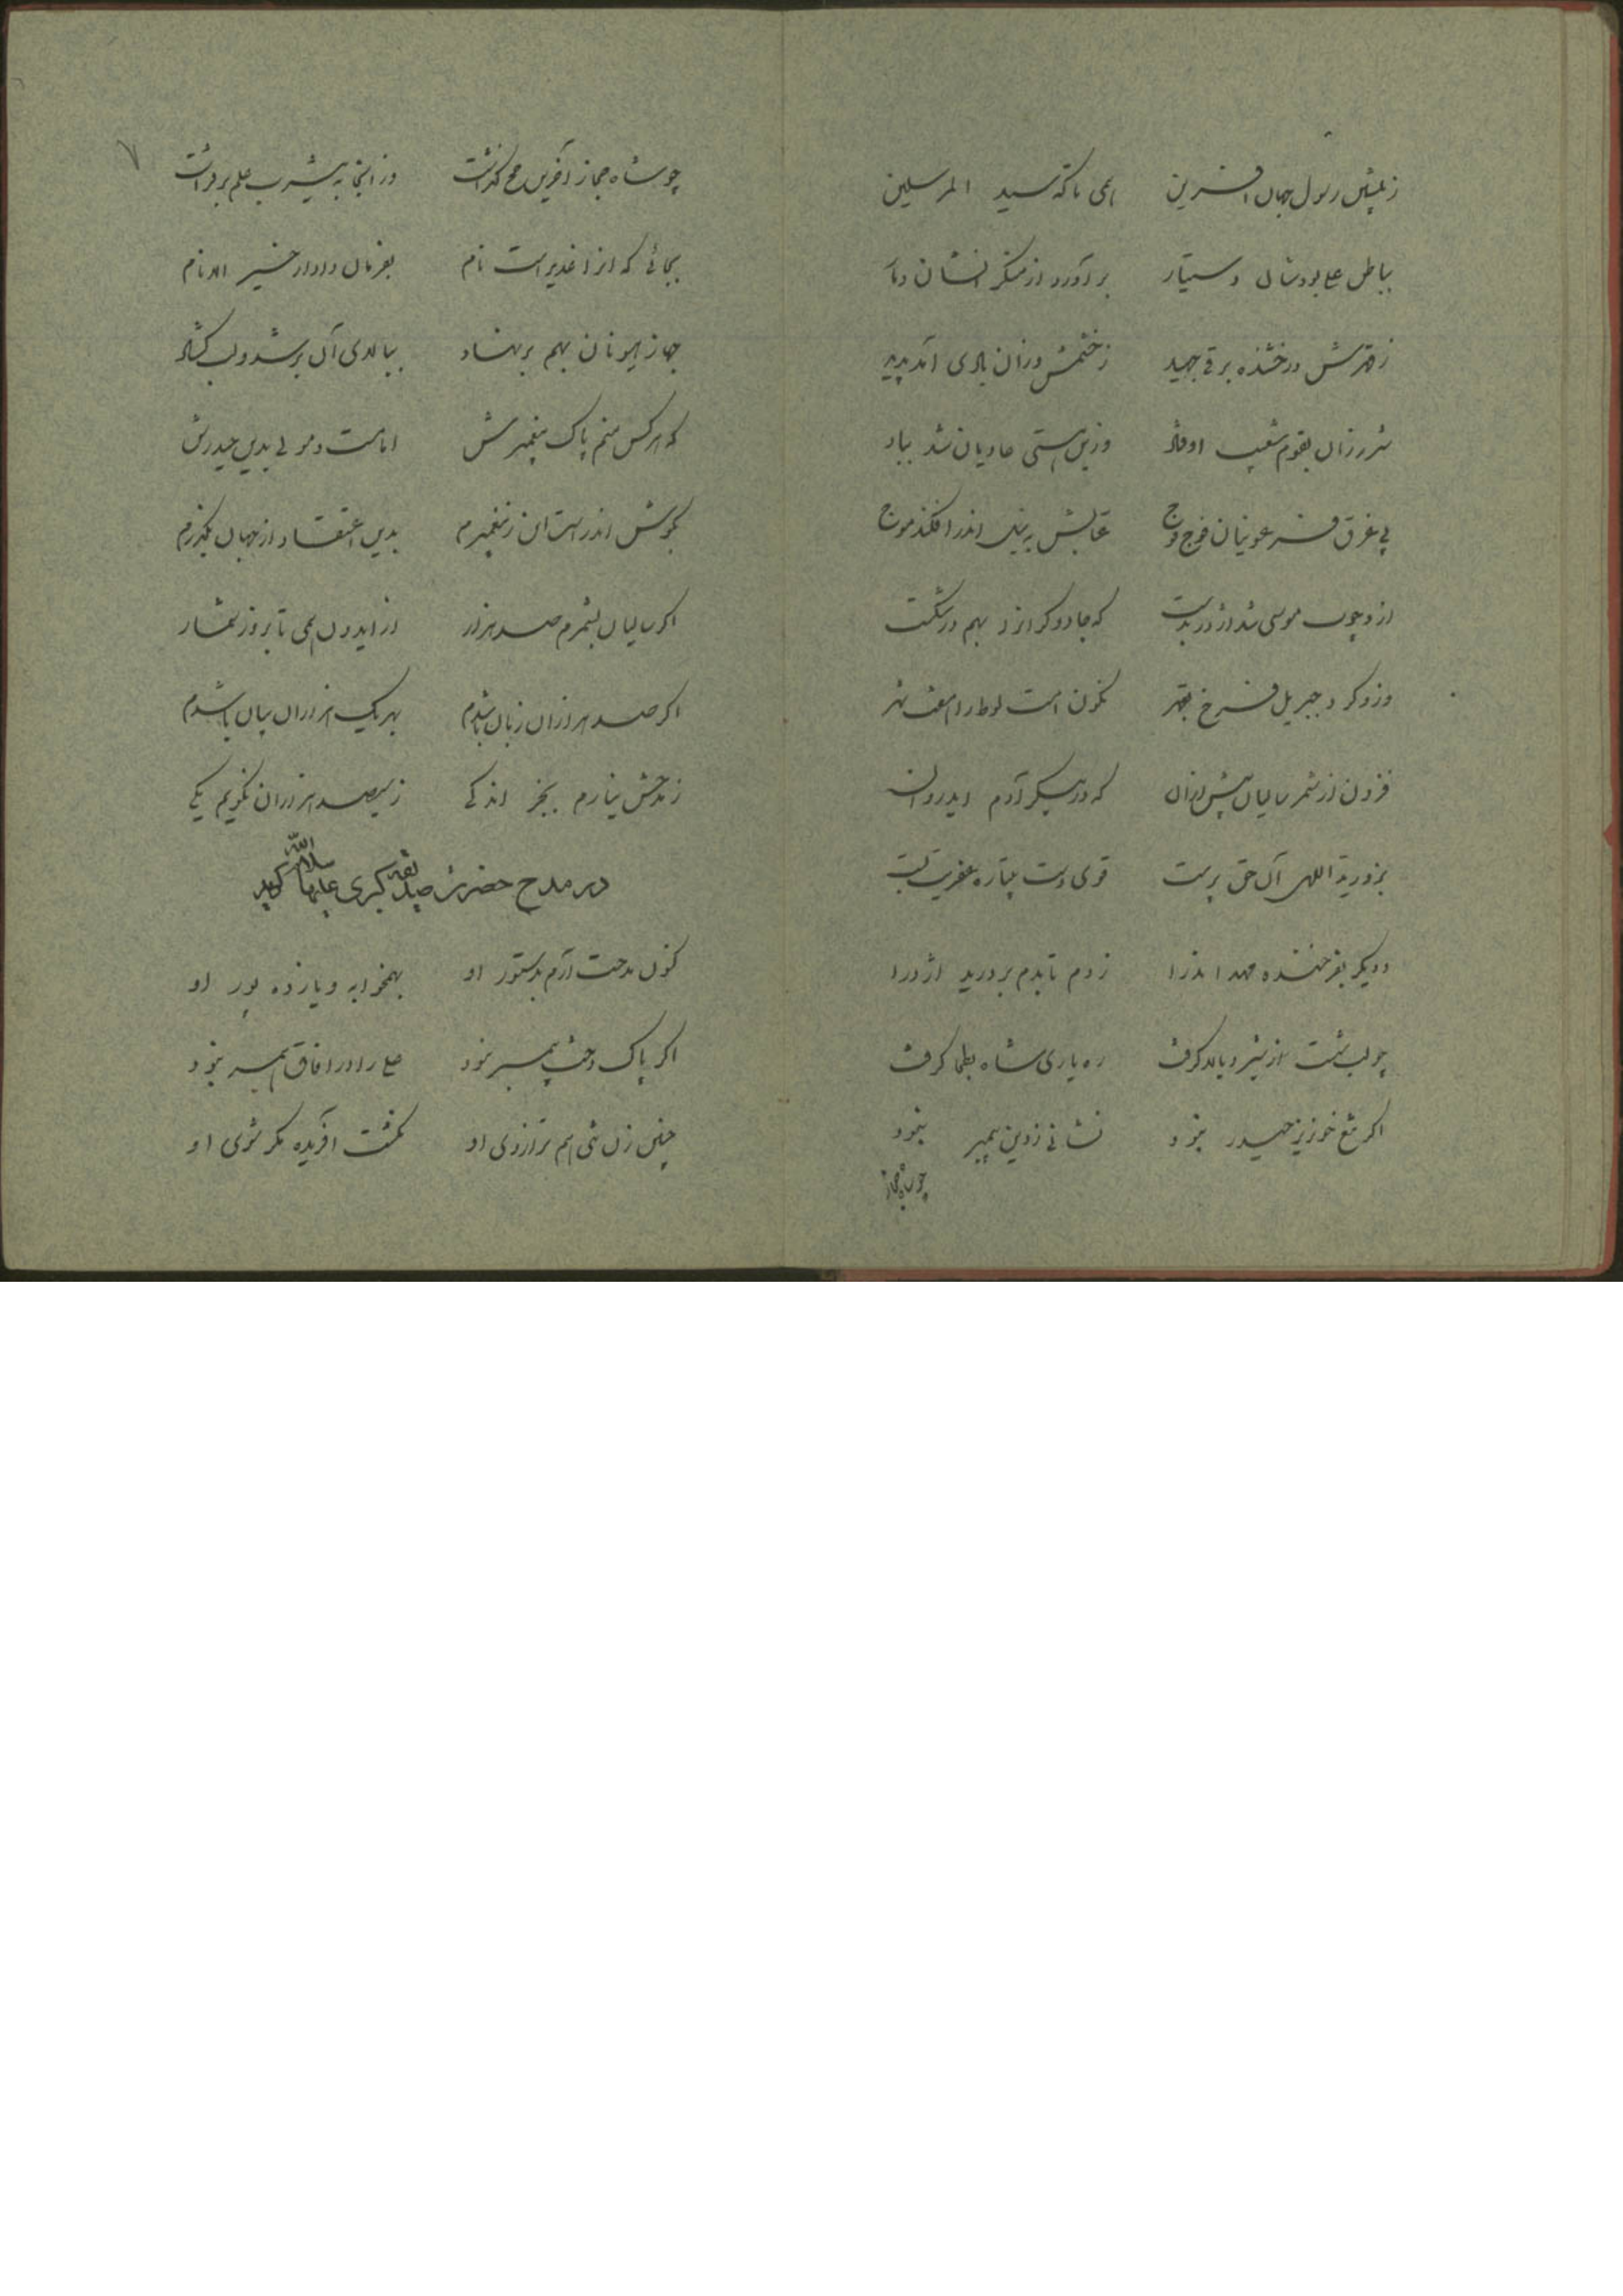 ز پیشین رسول جهان آفرین همی تا که سید المرسلین
بباطن علی بودشان دستیار برآورد از منکرانشان دمار
ز قهرش درخشنده برقی جهید ز خشمش وزان بادی آمد پدید
شرر زان بقوم شعیب اوفتاد وزین هستی عادیان شد بباد
پی غرق فرعونیان فوج فوج عتابش به نیل اندر افکند موج
ازو چوب موسی شد اژدر بدست که جادوگرانرا بهم درشکست
وزو کرد جبریل فرخ بقهر نگون امت لوط را هفت شهر
فزون از شمر سالیان پیش ازان که در پیکر آدم آید روان
بزور ید اللهی آن حق پرست قوی دست پتیاره عفریت بست
و دیگر بفرخنده مهد اندرا ز دم تا بدم بردرید اژدرا
چو لب شست از شیر و بالا گرفت ره یاری شاه بطحا گرفت
اگر تیغ خونریز حیدر نبود نشانی ز دین پیمبر نبود
چو شاه حجاز
چو شاه حجاز آخرین حج گذاشت وز آنجا به یثرب علم برفراشت
بجائی که آنرا غدیر است نام بفرمان دادار خیر الانام
جهاز هیونان بهم برنهاد ببالای آن بر شد و لب گشاد
که هر کس منم پاک پیغمبرش امامست و مولی بدین حیدرش
بگوش اندرست این ز پیغمبرم بدین اعتقاد از جهان بگذرم
اگر سالیان بشمرم صد هزار از ایدون همی تا بروز شمار
اگر صد هزاران زبان باشدم بهر یک هزاران بیان باشدم
ز مدحش نیارم بجز اندکی ز سیصد هزاران نگویم یکی
در مدح حضرت صدیقه کبری سلام الله علیها گوید
کنون مدحت آرم بدستور او بهمخوابه و یازده پور او
اگر پاک دخت پیمبر نبود علی را در آفاق همسر نبود
چنین زن شی هم ترازوی او نگشت آفریده مگر شوی او